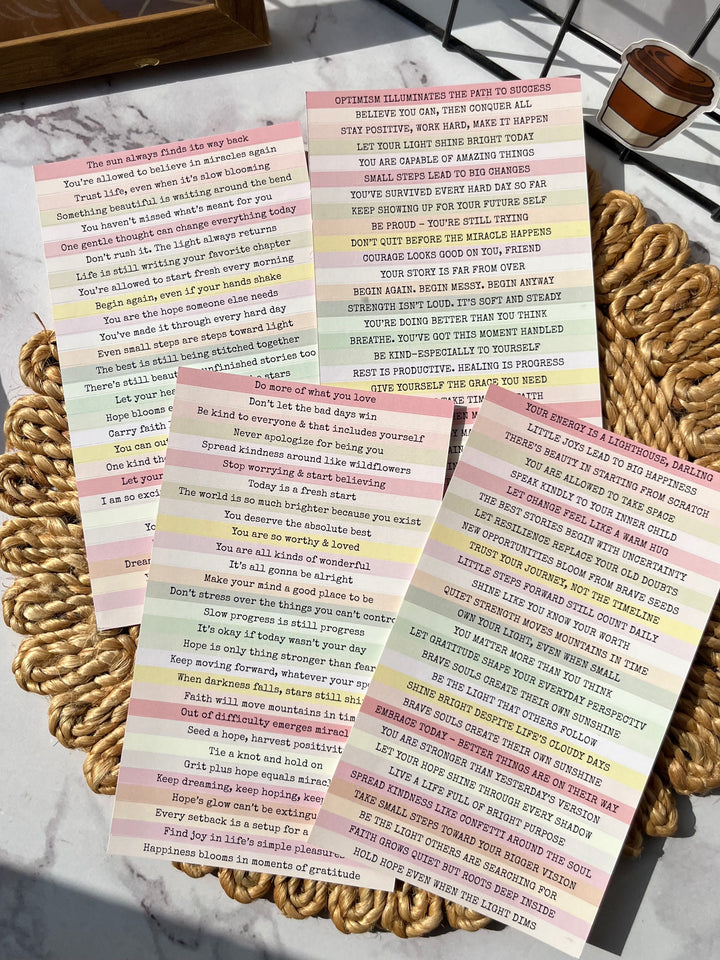 The sun always finds its way back
You're allowed to believe in miracles again
Trust life, even when it's slow blooming
Something beautiful is waiting around the bend
You haven't missed what's meant for you
One gentle thought can change everything today
Don't rush it. The light always returns
Life is still writing your favorite chapter
You're allowed to start fresh every morning
Begin again, even if your hands shake
You are the hope someone else needs
You've made it through every hard day
Even small steps are steps toward light
The best is still being stitched together
There's still unfinished stories too
Let your stars
Hope blooms
Carry faith
You can
One kind
Let your
I am so
OPTIMISM ILLUMINATES THE PATH TO SUCCESS
BELIEVE YOU CAN, THEN CONQUER ALL
STAY POSITIVE, WORK HARD, MAKE IT HAPPEN
LET YOUR LIGHT SHINE BRIGHT TODAY
YOU ARE CAPABLE OF AMAZING THINGS
SMALL STEPS LEAD TO BIG CHANGES
YOU'VE SURVIVED EVERY HARD DAY SO FAR
KEEP SHOWING UP FOR YOUR FUTURE SELF
BE PROUD – YOU'RE STILL TRYING
DON'T QUIT BEFORE THE MIRACLE HAPPENS
COURAGE LOOKS GOOD ON YOU, FRIEND
YOUR STORY IS FAR FROM OVER
BEGIN AGAIN. BEGIN MESSY. BEGIN ANYWAY
STRENGTH ISN'T LOUD. IT'S SOFT AND STEADY
YOU'RE DOING BETTER THAN YOU THINK
BREATHE. YOU'VE GOT THIS MOMENT HANDLED
BE KIND–ESPECIALLY TO YOURSELF
REST IS PRODUCTIVE. HEALING IS PROGRESS
GIVE YOURSELF THE GRACE YOU NEED
Do more of what you love
Don't let the bad days win
Be kind to everyone & that includes yourself
Never apologize for being you
Spread kindness around like wildflowers
Stop worrying & start believing
Today is a fresh start
The world is so much brighter because you exist
You deserve the absolute best
You are so worthy & loved
You are all kinds of wonderful
It's all gonna be alright
Make your mind a good place to be
Don't stress over the things you can't
Slow progress is still progress
It's okay if today wasn't your day
Hope is only thing stronger than fear
Keep moving forward, whatever your
When darkness falls, stars still
Faith will move mountains in
Out of difficulty emerges
Seed a hope, harvest
Tie a knot and hold on
Grit plus hope equals
Keep dreaming, keep hoping,
Hope's glow can't be
Every setback is a setup for a
Find joy in life's simple pleasures
Happiness blooms in moments of gratitude
YOUR ENERGY IS A LIGHTHOUSE, DARLING
LITTLE JOYS LEAD TO BIG HAPPINESS
THERE'S BEAUTY IN STARTING FROM SCRATCH
YOU ARE ALLOWED TO TAKE SPACE
SPEAK KINDLY TO YOUR INNER CHILD
LET CHANGE FEEL LIKE A WARM HUG
THE BEST STORIES BEGIN WITH UNCERTAINTY
LET RESILIENCE REPLACE YOUR OLD DOUBTS
NEW OPPORTUNITIES BLOOM FROM BRAVE SEEDS
TRUST YOUR JOURNEY, NOT THE TIMELINE
LITTLE STEPS FORWARD STILL COUNT DAILY
SHINE LIKE YOU KNOW YOUR WORTH
QUIET STRENGTH MOVES MOUNTAINS IN TIME
OWN YOUR LIGHT, EVEN WHEN SMALL
YOU MATTER MORE THAN YOU THINK
LET GRATITUDE SHAPE YOUR EVERYDAY PERSPECTIV
BRAVE SOULS CREATE THEIR OWN SUNSHINE
BE THE LIGHT THAT OTHERS FOLLOW
SHINE BRIGHT DESPITE LIFE'S CLOUDY DAYS
BRAVE SOULS CREATE THEIR OWN SUNSHINE
EMBRACE TODAY – BETTER THINGS ARE ON THEIR WAY
YOU ARE STRONGER THAN YESTERDAY'S VERSION
LET YOUR HOPE SHINE THROUGH EVERY SHADOW
LIVE A LIFE FULL OF BRIGHT PURPOSE
SPREAD KINDNESS LIKE CONFETTI AROUND THE SOUL
TAKE SMALL STEPS TOWARD YOUR BIGGER VISION
BE THE LIGHT OTHERS ARE SEARCHING FOR
FAITH GROWS QUIET BUT ROOTS DEEP INSIDE
HOLD HOPE EVEN WHEN THE LIGHT DIMS